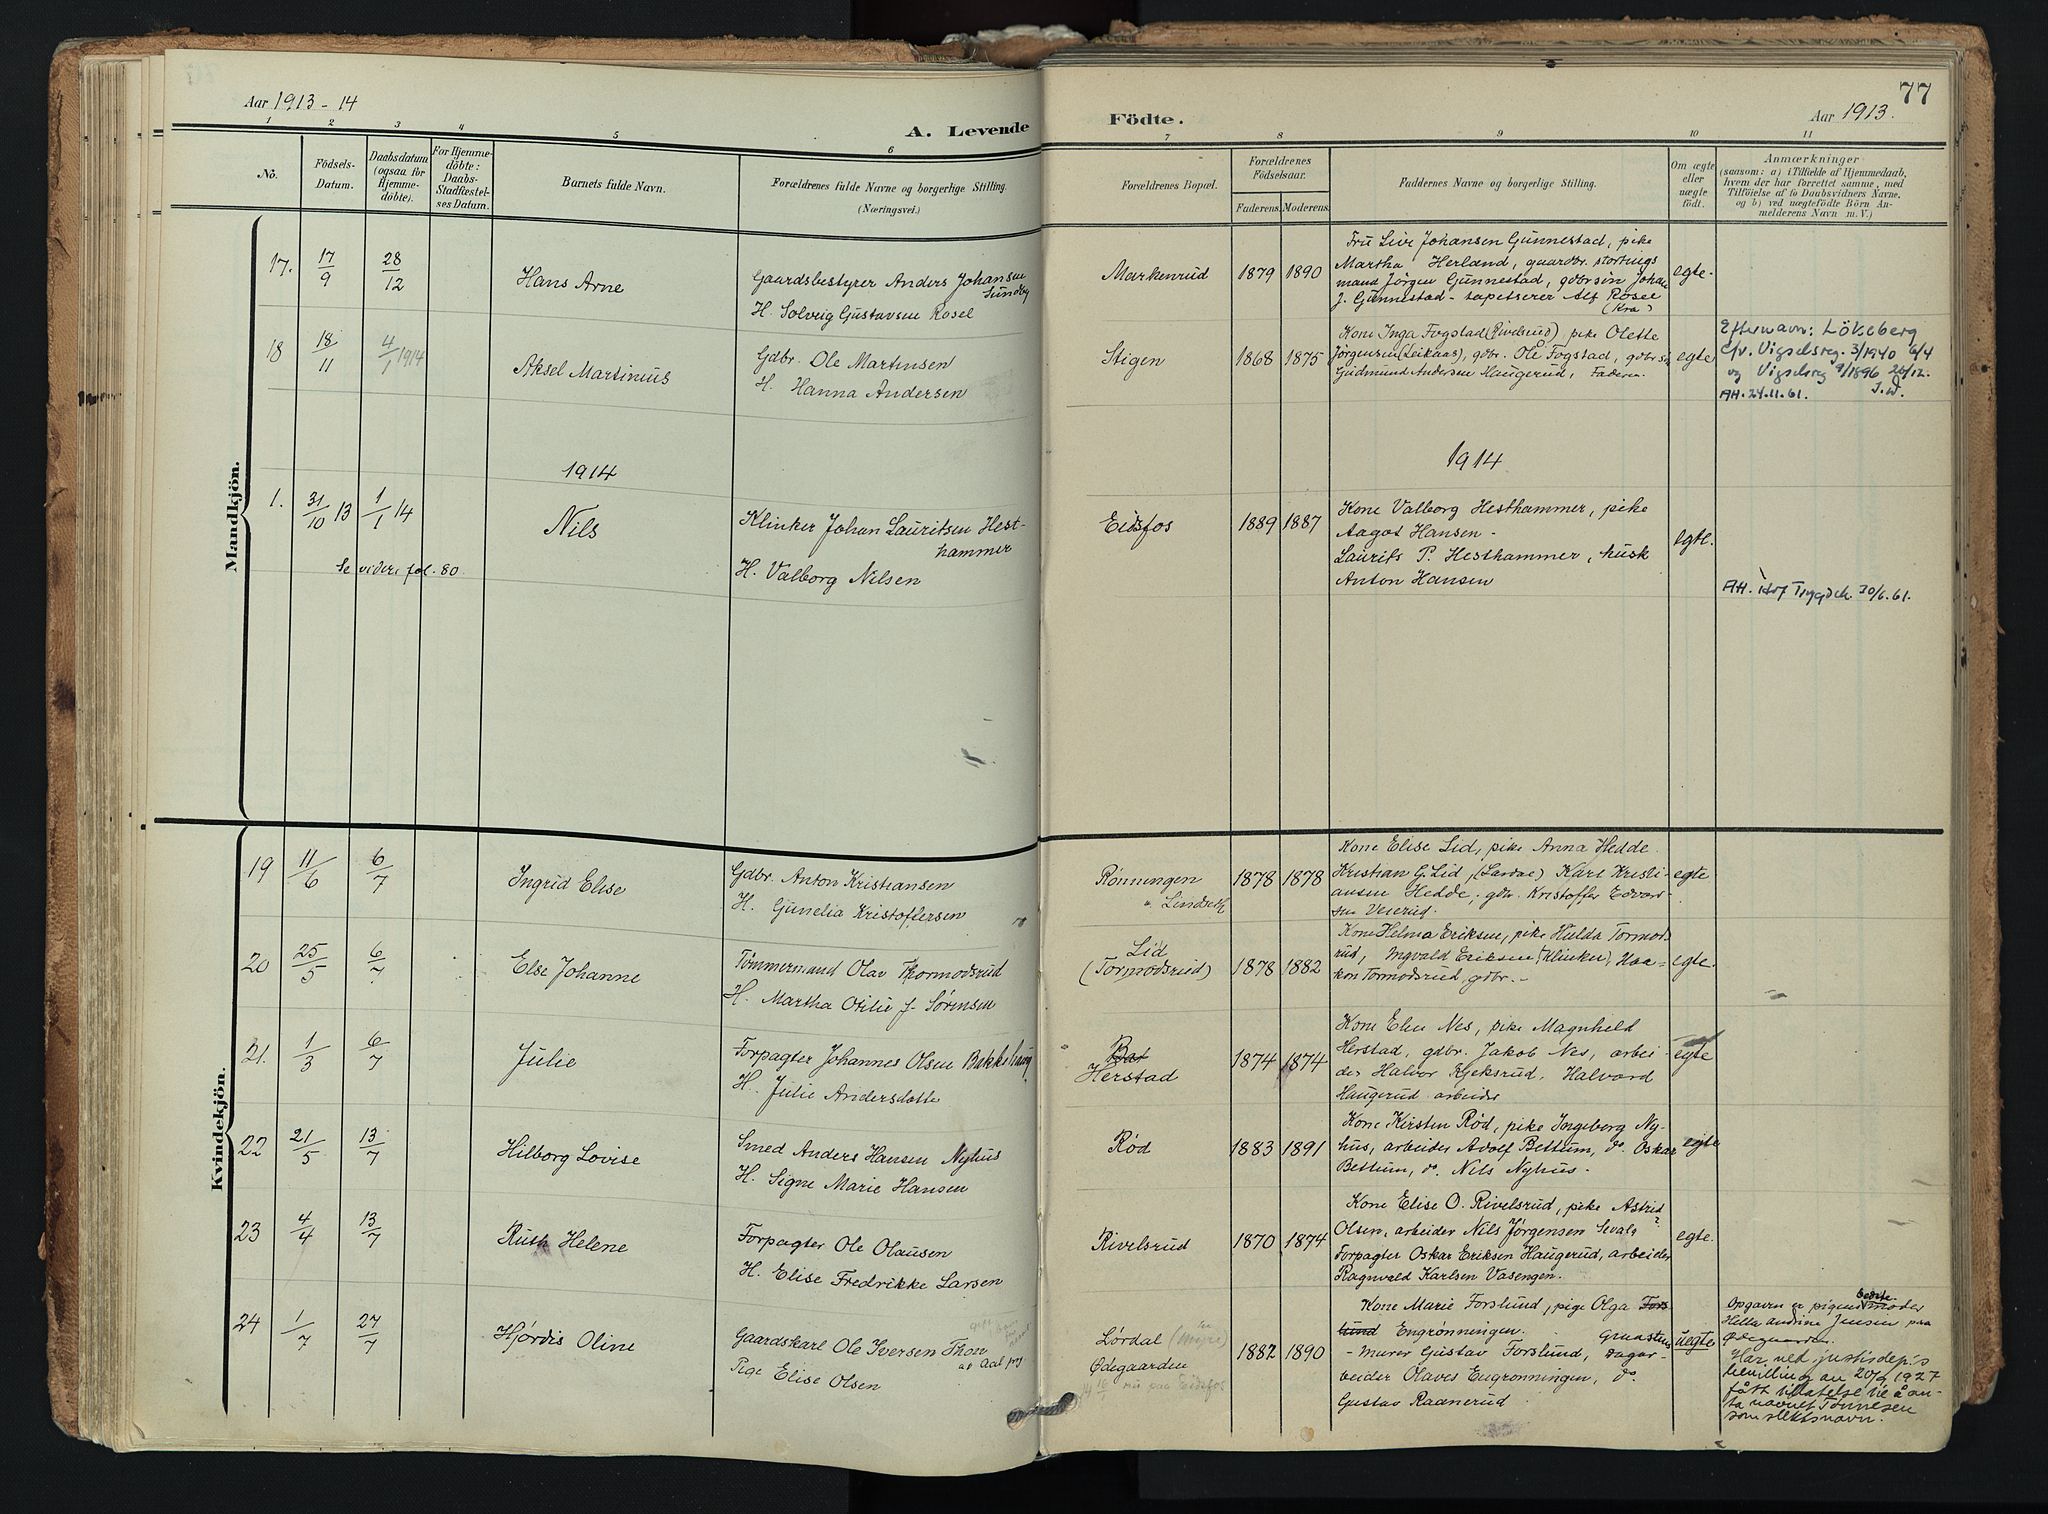 Aar 1913-14
A. Levende
Födte.
Aar 1913.
77
1 2 3 4 5 6 7 8 9 10 11
No.
Födsels-
Datum.
Daabsdatum
(ogsaa for
Hjemme-
döbte).
For Hjemme-
döbte:
Daabs-
Stadfæstel-
ses Datum.
Barnets fulde Navn.
Forældrenes fulde Navne og borgerlige Stilling.
(Næringsvei.)
Forældrenes Bopæl.
Forældrenes
Födselsaar.
Faderens. Moderens.
Faddernes Navne og borgerlige Stilling.
Om ægte
eller
uægte
födt.
Anmærkninger
(saasom: a) i Tilfælde af Hjemmedaab,
hvem der har forrettet samme, med
Tilföielse af to Daabsvidners Navne,
og b) ved uægtefödte Börn An-
melderens Navn m. V.)
Mandkjön.
17. 17/9 28/12
Hans Arne
Gaardsbestyrer Anders Johansen
Sundby
H. Solveig Gustavsen Rosel
Markenrud
1879 1890
Fru Live Johansen Gunnestad, pike
Martha Herland, gaardbr. stortings
mand Jörgen Gunnestad, gdbrsön Johan
J. Gunnestad - tapetserer Alf Rosel
(Kra)
egte.
18 18/11 4/1 1914
Aksel Martinius
Gdbr. Ole Martinsen
H. Hanna Andersen
Stigen
1868 1875
Kone Inga Fogstad (Rivelsrud), pike Olette
Jørgensen (Leikaas), gdbr. Ole Fogstad, gdbrsøn
Gudmund Andersen Haugerud, Faderen.
egte
Efternavn: Lökeberg
c/v. Vigselsreg. 3/1940 6/4
og Vigselsreg 9/1896 26/12.
AH. 24.11.61. J.W.
1914
1914
1. 31/10 13 1/1 14
Nils
Klinker Johan Lauritsen Hest-
hammer
H. Valborg Nilsen
Se videre fol. 80
Eidsfos
1889 1887
Kone Valborg Hesthammer, pike
Aagot Hansen -
Laurits P. Hesthammer, husk
Anton Hansen
egte.
AH. Hof Trygdek. 30/6.61.
Kvindekjön.
19 11/6 6/7
Ingrid Elise
Gdbr. Anton Kristiansen
H. Gunelia Kristoffersen
Rønningen
u. Lindseth
1878 1878
Kone Elise Lid, pike Anna Hedde
Kristian G. Lid, (Lardal) Karl Kristi-
ansen Hedde; gdbr. Kristoffer Edvard-
sen Veierud.
egte
20 25/5 6/7
Else Johanne
Tømmermand Olav Thormodsrud
H. Martha Otilie f. Sørensen
Lid
(Tormodsrud)
1878 1882
Kone Helma Eriksen, pike Hulda Tormods-
rud, Ingvald Eriksen (Klinker), Haa-
kon Tormodsrud, gdbr. -
egte.
21. 1/3 6/7
Julie
Forpagter Johannes Olsen Bakkehaug
H. Julie Andersdatte
Bat
Herstad
1874 1874
Kone Elen Nes, pike Magnhild
Herstad, gdbr. Jakob Nes, arbei-
der Halvor Kjeksrud, Halvard
Haugerud arbeider
egte
22 21/5 13/7
Hilborg Lovise
Smed Anders Hansen Nyhus
H. Signe Marie Hansen
Rød
1883 1891
Kone Kirsten Rød, pike Ingeborg Ny-
hus, arbeider Adolf Bettum, do. Oskar
Bettum, do. Nils Nyhus.
egte
23 4/4 13/7
Ruth Helene
Forpagter Ole Olausen
H. Elise Fredrikke Larsen
Rivelsrud
1870 1874
Kone Elise O. Rivelsrud, pike Astrid
Olsen, arbeider Nils Jørgensen Sevals
Forpagter Oskar Eriksen Haugerud, arbeider
Ragnvald Karlsen Vasengen.
egte.
24 1/7 27/7
Hjördis Oline
Gaardskarl Ole Iversen Thon
Pige Elise Olsen
Lørdal
Ødegaarden
nu paa Eidsfos
1882 1890
Kone Marie Forslund, pige Olga Fors
lund Engrønningen. Graasten
- murer Gustav Forslund, dagar-
beider Olaves Engrønningen, do.
Gustav Raanerud
uegte
Opgaven er pigens bedste moder
Helle Andrine Jensen paa
Ødegaarden.
Har ved justisdep's
bevilling av 20/2 1927
fått tillatelse til å an-
ta navnet Tønnesen
som slektsnavn.